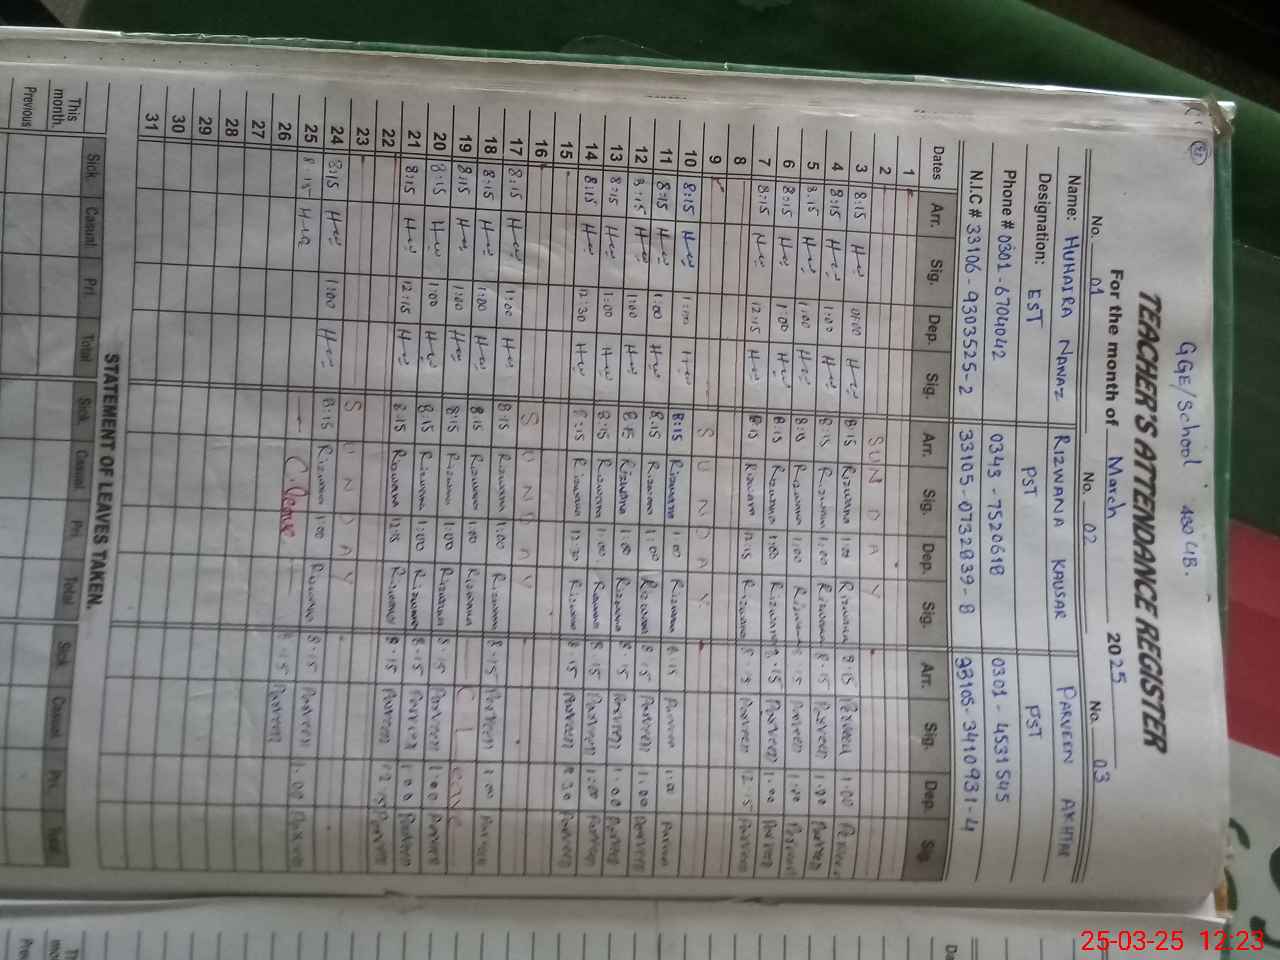 GGE/School 430 GB.
TEACHER'S ATTENDANCE REGISTER
For the month of March 2025
No. 01 No. 02 No. 03
Name: HUMAIRA NAWAZ RIZWANA KAUSAR PARVEEN AKHTAR
Designation: EST PST PST
Phone # 0301-6704042 0343-7520618 0301-4531545
N.I.C # 33106-9303525-2 33105-0732839-8 33105-3410931-4
Dates Arr. Sig. Dep. Sig. Arr. Sig. Dep. Sig. Arr. Sig. Dep. Sig.
1
2 SUNDAY
3 8:15 01:00 8:15 Rizwana 1:00 Rizwana 8:15 1:00
4 8:15 1:00 8:15 Rizwana 1:00 Rizwana 8:15 Parveen 1:00 Parveen
5 8:15 1:00 8:15 Rizwana 1:00 Rizwana 8:15 Parveen 1:00 Parveen
6 8:15 1:00 8:15 Rizwana 1:00 Rizwana 8:15 Parveen 1:00 Parveen
7 8:15 12:15 8:15 Rizwana 12:15 Rizwana 8:15 Parveen 12:15 Parveen
8
9 SUNDAY
10 8:15 1:00 8:15 Rizwana 1:00 Rizwana 8:15 Parveen 1:00 Parveen
11 8:15 1:00 8:15 Rizwana 1:00 Rizwana 8:15 Parveen 1:00 Parveen
12 8:15 1:00 8:15 Rizwana 1:00 Rizwana 8:15 Parveen 1:00 Parveen
13 8:15 1:00 8:15 Rizwana 1:00 Rizwana 8:15 Parveen 1:00 Parveen
14 8:15 12:30 8:15 Rizwana 12:30 Rizwana 8:15 Parveen Parveen
15
16 SUNDAY
17 8:15 1:00 8:15 Rizwana 1:00 Rizwana 8:15 Parveen 1:00 Parveen
18 8:15 1:00 8:15 Rizwana 1:00 Rizwana Leave
19 8:15 1:00 8:15 Rizwana 1:00 Rizwana 8:15 Parveen 1:00 Parveen
20 8:15 1:00 8:15 Rizwana 1:00 Rizwana 8:15 Parveen 1:00 Parveen
21 8:15 12:15 8:15 Rizwana 12:15 Rizwana 8:15 Parveen 12:15 Parveen
22
23 SUNDAY
24 8:15 1:00 8:15 Rizwana 1:00 Rizwana 8:15 Parveen 1:00 Parveen
25 8:15 C.Leave 8:15 Parveen
26
27
28
29
30
31
STATEMENT OF LEAVES TAKEN.
Sick Casual Pri. Total Sick Casual Pri. Total Sick Casual Pri. Total
This month.
Previous
25-03-25 12:23